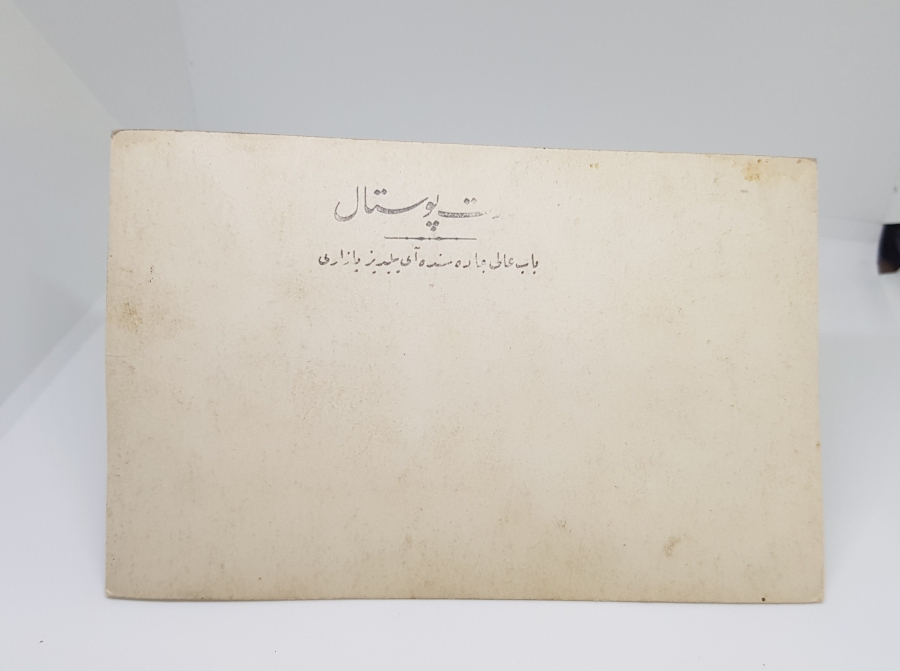 پوستال
باب عالی جاده سنده آی یلدیز بازاری